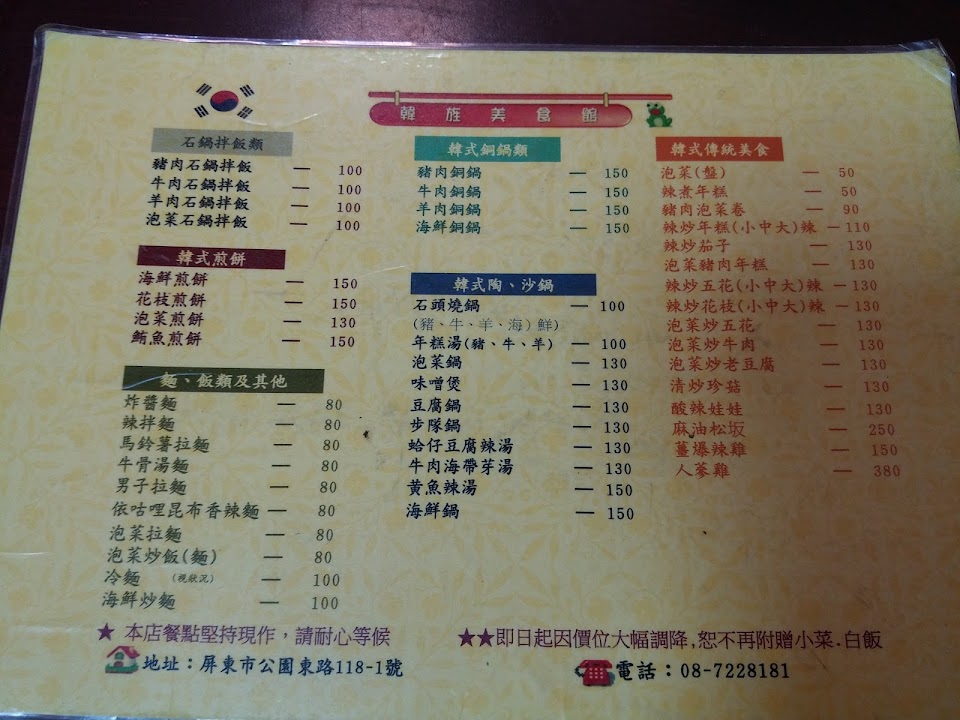 韓族美食館
石鍋拌飯類
豬肉石鍋拌飯 — 100
牛肉石鍋拌飯 — 100
羊肉石鍋拌飯 — 100
泡菜石鍋拌飯 — 100
韓式煎餅
海鮮煎餅 — 150
花枝煎餅 — 150
泡菜煎餅 — 130
鮪魚煎餅 — 150
麵、飯類及其他
炸醬麵 — 80
辣拌麵 — 80
馬鈴薯拉麵 — 80
牛骨湯麵 — 80
男子拉麵 — 80
依咕哩昆布香辣麵 — 80
泡菜拉麵 — 80
泡菜炒飯(麵) — 80
冷麵 (視狀況) — 100
海鮮炒麵 — 100
韓式銅鍋類
豬肉銅鍋 — 150
牛肉銅鍋 — 150
羊肉銅鍋 — 150
海鮮銅鍋 — 150
韓式陶、沙鍋
石頭燒鍋 — 100
(豬、牛、羊、海)鮮)
年糕湯(豬、牛、羊) — 100
泡菜鍋 — 130
味噌煲 — 130
豆腐鍋 — 130
步隊鍋 — 130
蛤仔豆腐辣湯 — 130
牛肉海帶芽湯 — 130
黄魚辣湯 — 150
海鮮鍋 — 150
韓式傳統美食
泡菜(盤) — 50
辣煮年糕 — 50
豬肉泡菜卷 — 90
辣炒年糕(小中大)辣 — 110
辣炒茄子 — 130
泡菜豬肉年糕 — 130
辣炒五花(小中大)辣 — 130
辣炒花枝(小中大)辣 — 130
泡菜炒五花 — 130
泡菜炒牛肉 — 130
泡菜炒老豆腐 — 130
清炒珍菇 — 130
酸辣娃娃 — 130
麻油松坂 — 250
薑爆辣雞 — 150
人蔘雞 — 380
★ 本店餐點堅持現作，請耐心等候
★★即日起因價位大幅調降,恕不再附贈小菜.白飯
地址：屏東市公園東路118-1號
電話：08-7228181